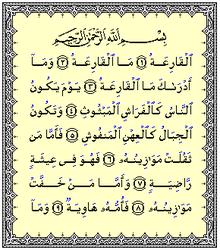 بِسْمِ ٱللَّهِ ٱلرَّحْمَٰنِ ٱلرَّحِيمِ
ٱلْقَارِعَةُ ۝١ مَا ٱلْقَارِعَةُ ۝٢ وَمَآ
أَدْرَىٰكَ مَا ٱلْقَارِعَةُ ۝٣ يَوْمَ يَكُونُ
ٱلنَّاسُ كَٱلْفَرَاشِ ٱلْمَبْثُوثِ ۝٤ وَتَكُونُ
ٱلْجِبَالُ كَٱلْعِهْنِ ٱلْمَنفُوشِ ۝٥ فَأَمَّا مَن
ثَقُلَتْ مَوَٰزِينُهُۥ ۝٦ فَهُوَ فِى عِيشَةٍ
رَّاضِيَةٍ ۝٧ وَأَمَّا مَنْ خَفَّتْ
مَوَٰزِينُهُۥ ۝٨ فَأُمُّهُۥ هَاوِيَةٌ ۝٩ وَمَآ